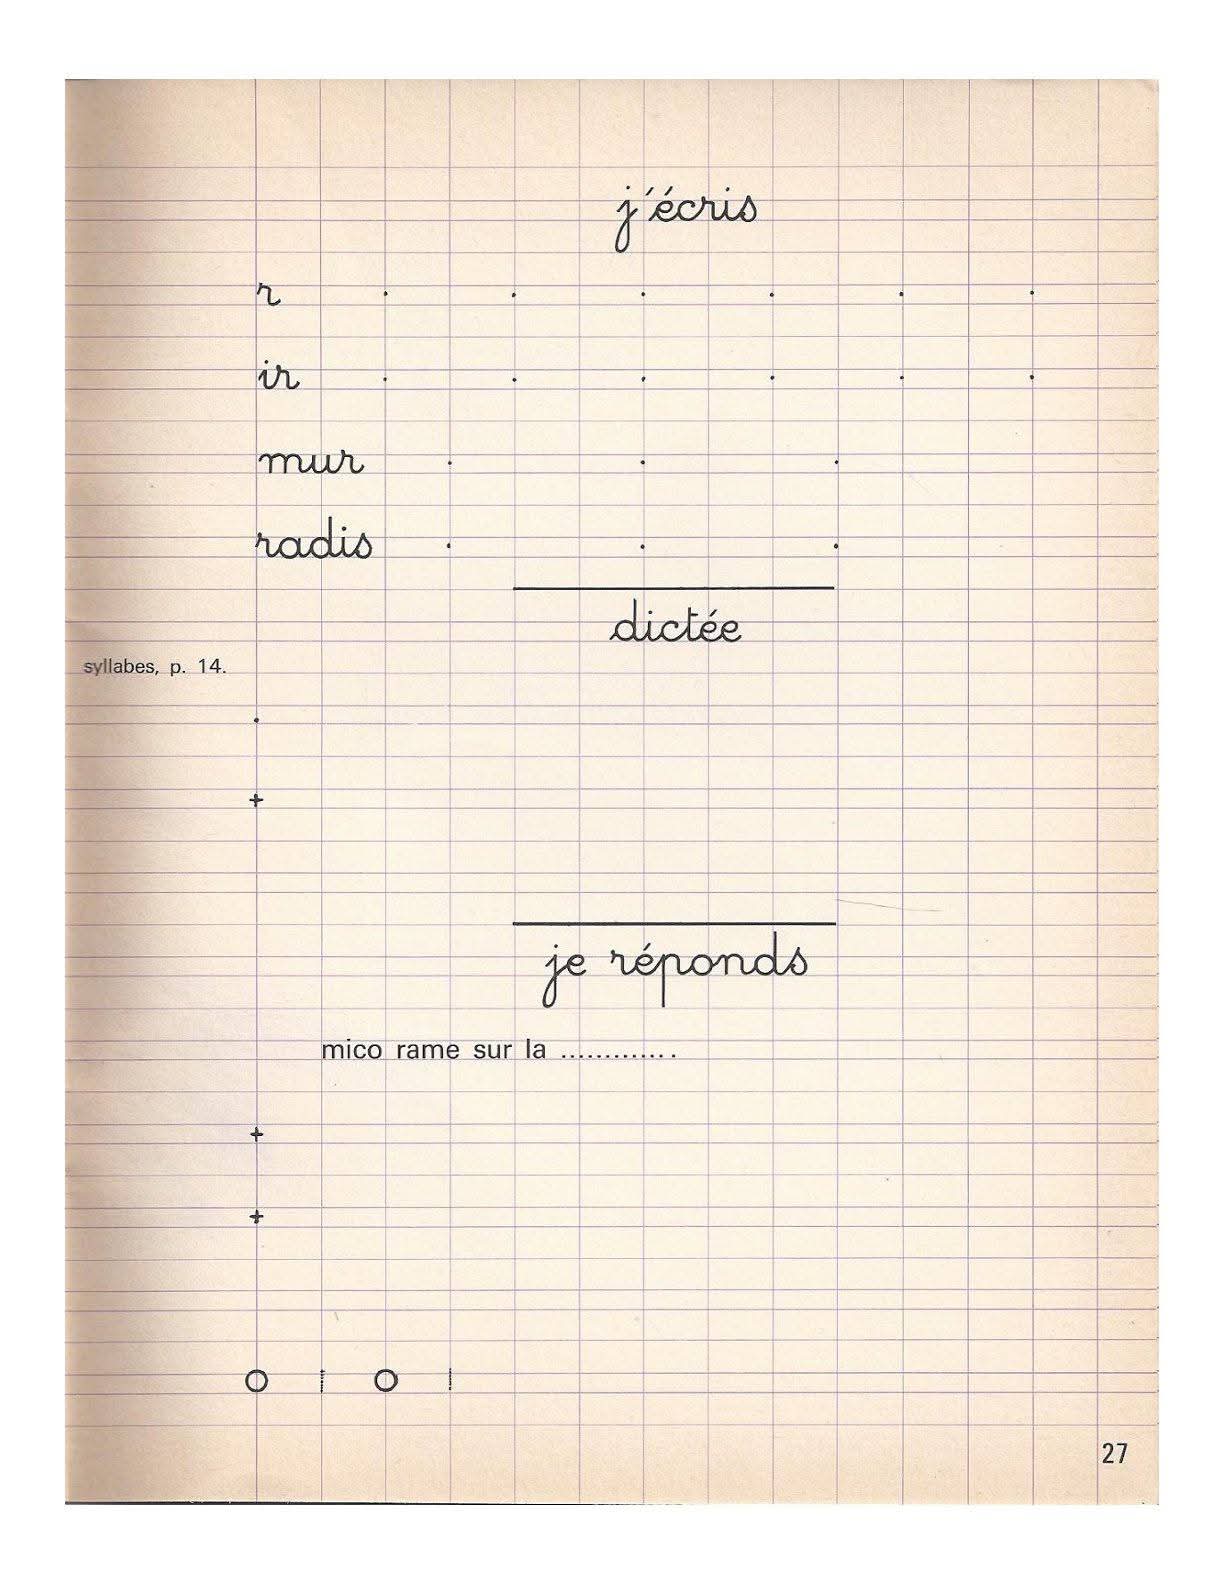 j'écris
r . . . . . .
ir . . . . . .
mur . . .
radis . . .
dictée
syllabes, p. 14.
.
+
je réponds
mico rame sur la ..............
+
+
O | O |
27